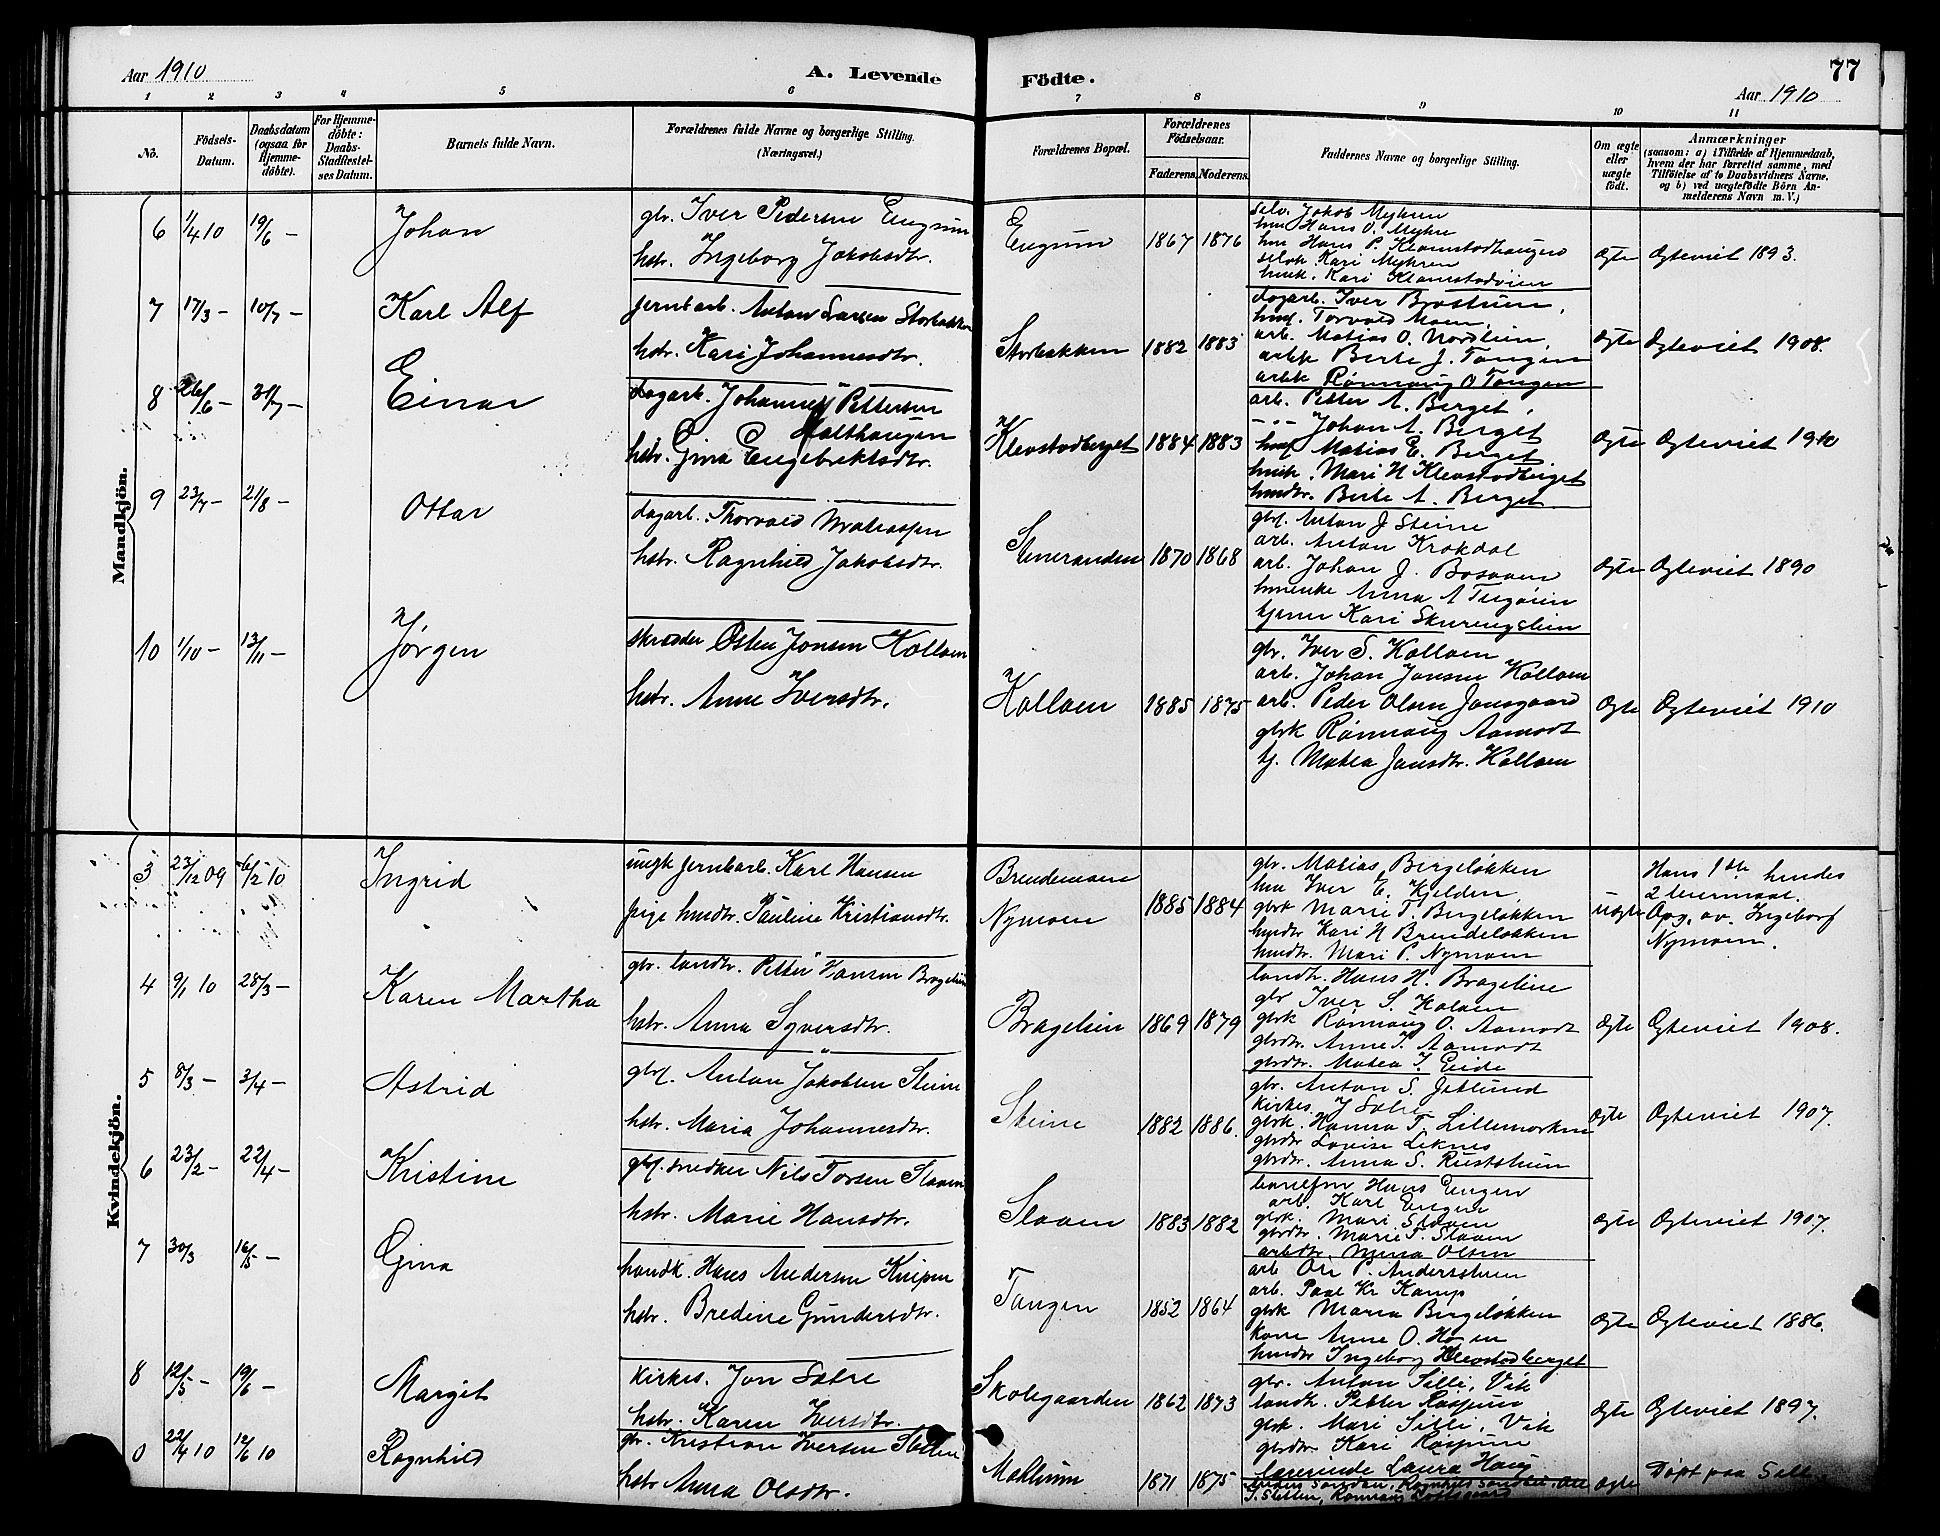 Aar 1910
A. Levende Födte.
77
Aar 1910
1 2 3 4 5 6 7 8 9 10 11
No.
Födsels-Datum.
Daabsdatum (ogsaa for Hjemmedöbte).
For Hjemmedöbte: Daabs-Stadfæstelses Datum.
Barnets fulde Navn.
Forældrenes fulde Navne og borgerlige Stilling. (Næringsvei.)
Forældrenes Bopæl.
Forældrenes Födselsaar.
Faderens. Moderens.
Faddernes Navne og borgerlige Stilling.
Om ægte eller uægte födt.
Anmærkninger
(saasom: a) i Tilfælde af Hjemmedaab, hvem der har forrettet samme, med Tilföielse af to Daabsvidners Navne, og b) ved uægtefödte Börn Anmelderens Navn m. V.)
Mandkjön.
6 1/4 10 19/6 — Johan
gbr. Iver Pedersen Engum
hstr. Ingeborg Jakobsdtr.
Engum 1867 1876
selv. Jakob Myhren
hm Hans O. Myhre
hm Hans P. Klomstadhaugen
selvk. Kari Myhren
hmk. Kari Klomstadvien
ægte Ægteviet 1893.
7 17/3 — 10/7 — Karl Alf
jernbarb. Anton Larsen Storbakken
hstr. Kari Johannesdtr.
Storbakken 1882 1883
dagarb. Iver Brostuen,
Torvald Moen,
arb. Matias O. Nordlien,
arbk Berte J. Tangen
arbk Rønnaug O Tangen
ægte Ægteviet 1908.
8 26/6 — 31/7 — Einar
dagarb. Johannes Pettersen
Holthaugen
hstr. Gina Engebrektsdtr.
Klevstadberget 1884 1883
arb. Petter A. Berget,
-"- Johan A. Berget
Matias E. Berget
hmk. Mari N Klevstadberget
hmdtr. Berte A. Berget
ægte Ægteviet 1910
9 23/7 — 21/8 — Ottar
dagarb. Thorvald Matiassen
hstr. Ragnhild Jakobsdtr.
Steineranden 1870 1868
gbf. Anton J Steine
arb. Anton Krokdal
arb. Johan J. Bosaaen
Anna A
tjener Kari Skuringslien
ægte Ægteviet 1890
10 1/10 — 13/11 — Jørgen
skræder Østen Jonsen Kolloen
hstr. Anne Iversdtr.
Kolloen 1885 1875
gbr. Iver S. Kolloen
arb. Johan Jonsen Kolloen
arb. Peder Olsen Jonsgaard
gbrk Rønnaug Aamodt
tj. Matea Jonsdtr. Kolloen
ægte Ægteviet 1910
Kvindekjön.
3 23/12 09 6/2 10 Ingrid
ungk jernbarb. Karl Hansen
pige hmdtr. Pauline Kristiansdtr.
Brendemoen
Nymoen 1885 1884
gbr. Matias Bergeløkken
hm Iver E. Kjelden
gbrk Marie T. Bergeløkken
hmdtr Kari N Brendeløkken
hmdtr. Mari P. Nymoen
uægte
Hans 1ste hendes
2 leiermaal.
Opg. av. Ingeborg
Nymoen.
4 9/1 10 28/3 — Karen Martha
gbr. landh. Petter Hansen Bragelien
hstr. Anna Syversdtr.
Bragelien 1869 1879
landh. Hans H. Bragelien
gbr Iver S. Koloen
gbrk Rønnaug O. Aamodt
gbrdtr. Anne T. Aamodt
gbrdtr. Matea I. Eide
ægte Ægteviet 1908.
5 8/3 — 3/4 — Astrid
gbf. Anton Jakobsen Steine
hstr. Maria Johannesdtr.
Steine 1882 1886.
gbr. Anton S. Jetlund
kirkes. J Solre
gbrk. Hanna T. Lillemorken
gbrdtr Lovise Leknes
gbrdtr. Anna S. Ruststuen
ægte Ægteviet 1907.
6 23/2 — 22/4 — Kristine
gbf. snedker Nils Torsen Slaaen
hstr. Marie Hansdtr.
Slaaen 1883 1882
Hans Engen
arb. Karl Engen
gbrk. Mari Slaaen
gbrdtr. Marie T. Slaaen
arbdtr. Olsen
ægte Ægteviet 1907.
7 30/3 16/5 — Gina
handk. Hans Andersen Knipen
hstr. Bredine Gundersdtr.
Tangen 1852 1864
arb Ole P. Anderstuen
arb. Paal Kr Kamp
gbrk Maria Bergeløkken
kone Anne O. Moen
hmdtr Ingeborg Klevstadberget
ægte Ægteviet 1886.
8 12/5 — 19/6 — Margit
Kirkes. Jon Solre
hstr. Karen Iversdtr.
Skolegaarden 1862 1873
gbr. Anton Silli, Vik
landh. Petter Raspuin
gbrk. Mari Silli, Vik
gbrdtr Kari Raspuin
lærerinde Laura Haug
ægte Ægteviet 1897.
22/4 10 12/6 10 Ragnhild
gbr. Kristian Iversen Sletten
hstr. Anna Olsdtr.
Moklium 1871 1875
ægte Døpt paa Sell.